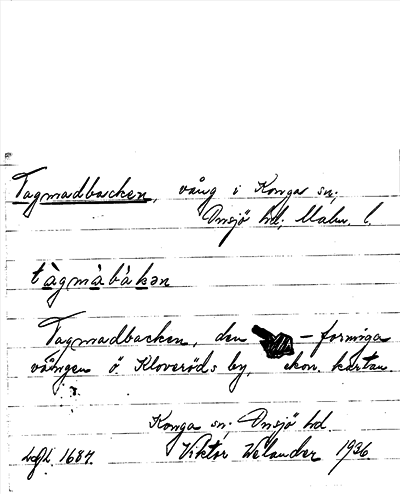 Tagmadbacken, vång i Konga sn;
Onsjö hd, Malm. l.
tàgmàbàkən
Tagmadbacken, den – formiga
vången ö Kloveröds by, ekon. kartan.
Konga sn; Onsjö hd.
Ldgh. 1684. Viktor Welander 1936.